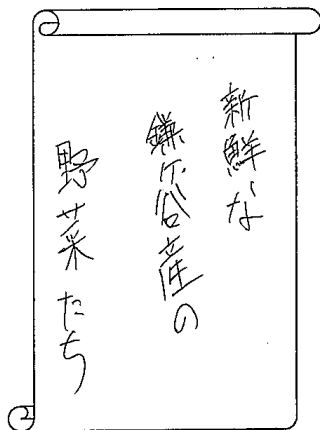 新鮮な
鎌ケ谷産の
野菜たち